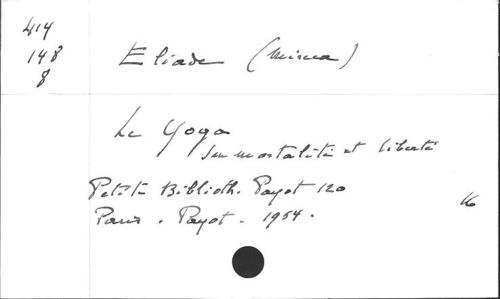 414
148
8
Eliade (Mircea)
Le Yoga
Immortalité et liberté
Petite Biblioth. Payot 120
Paris. Payot. 1954.